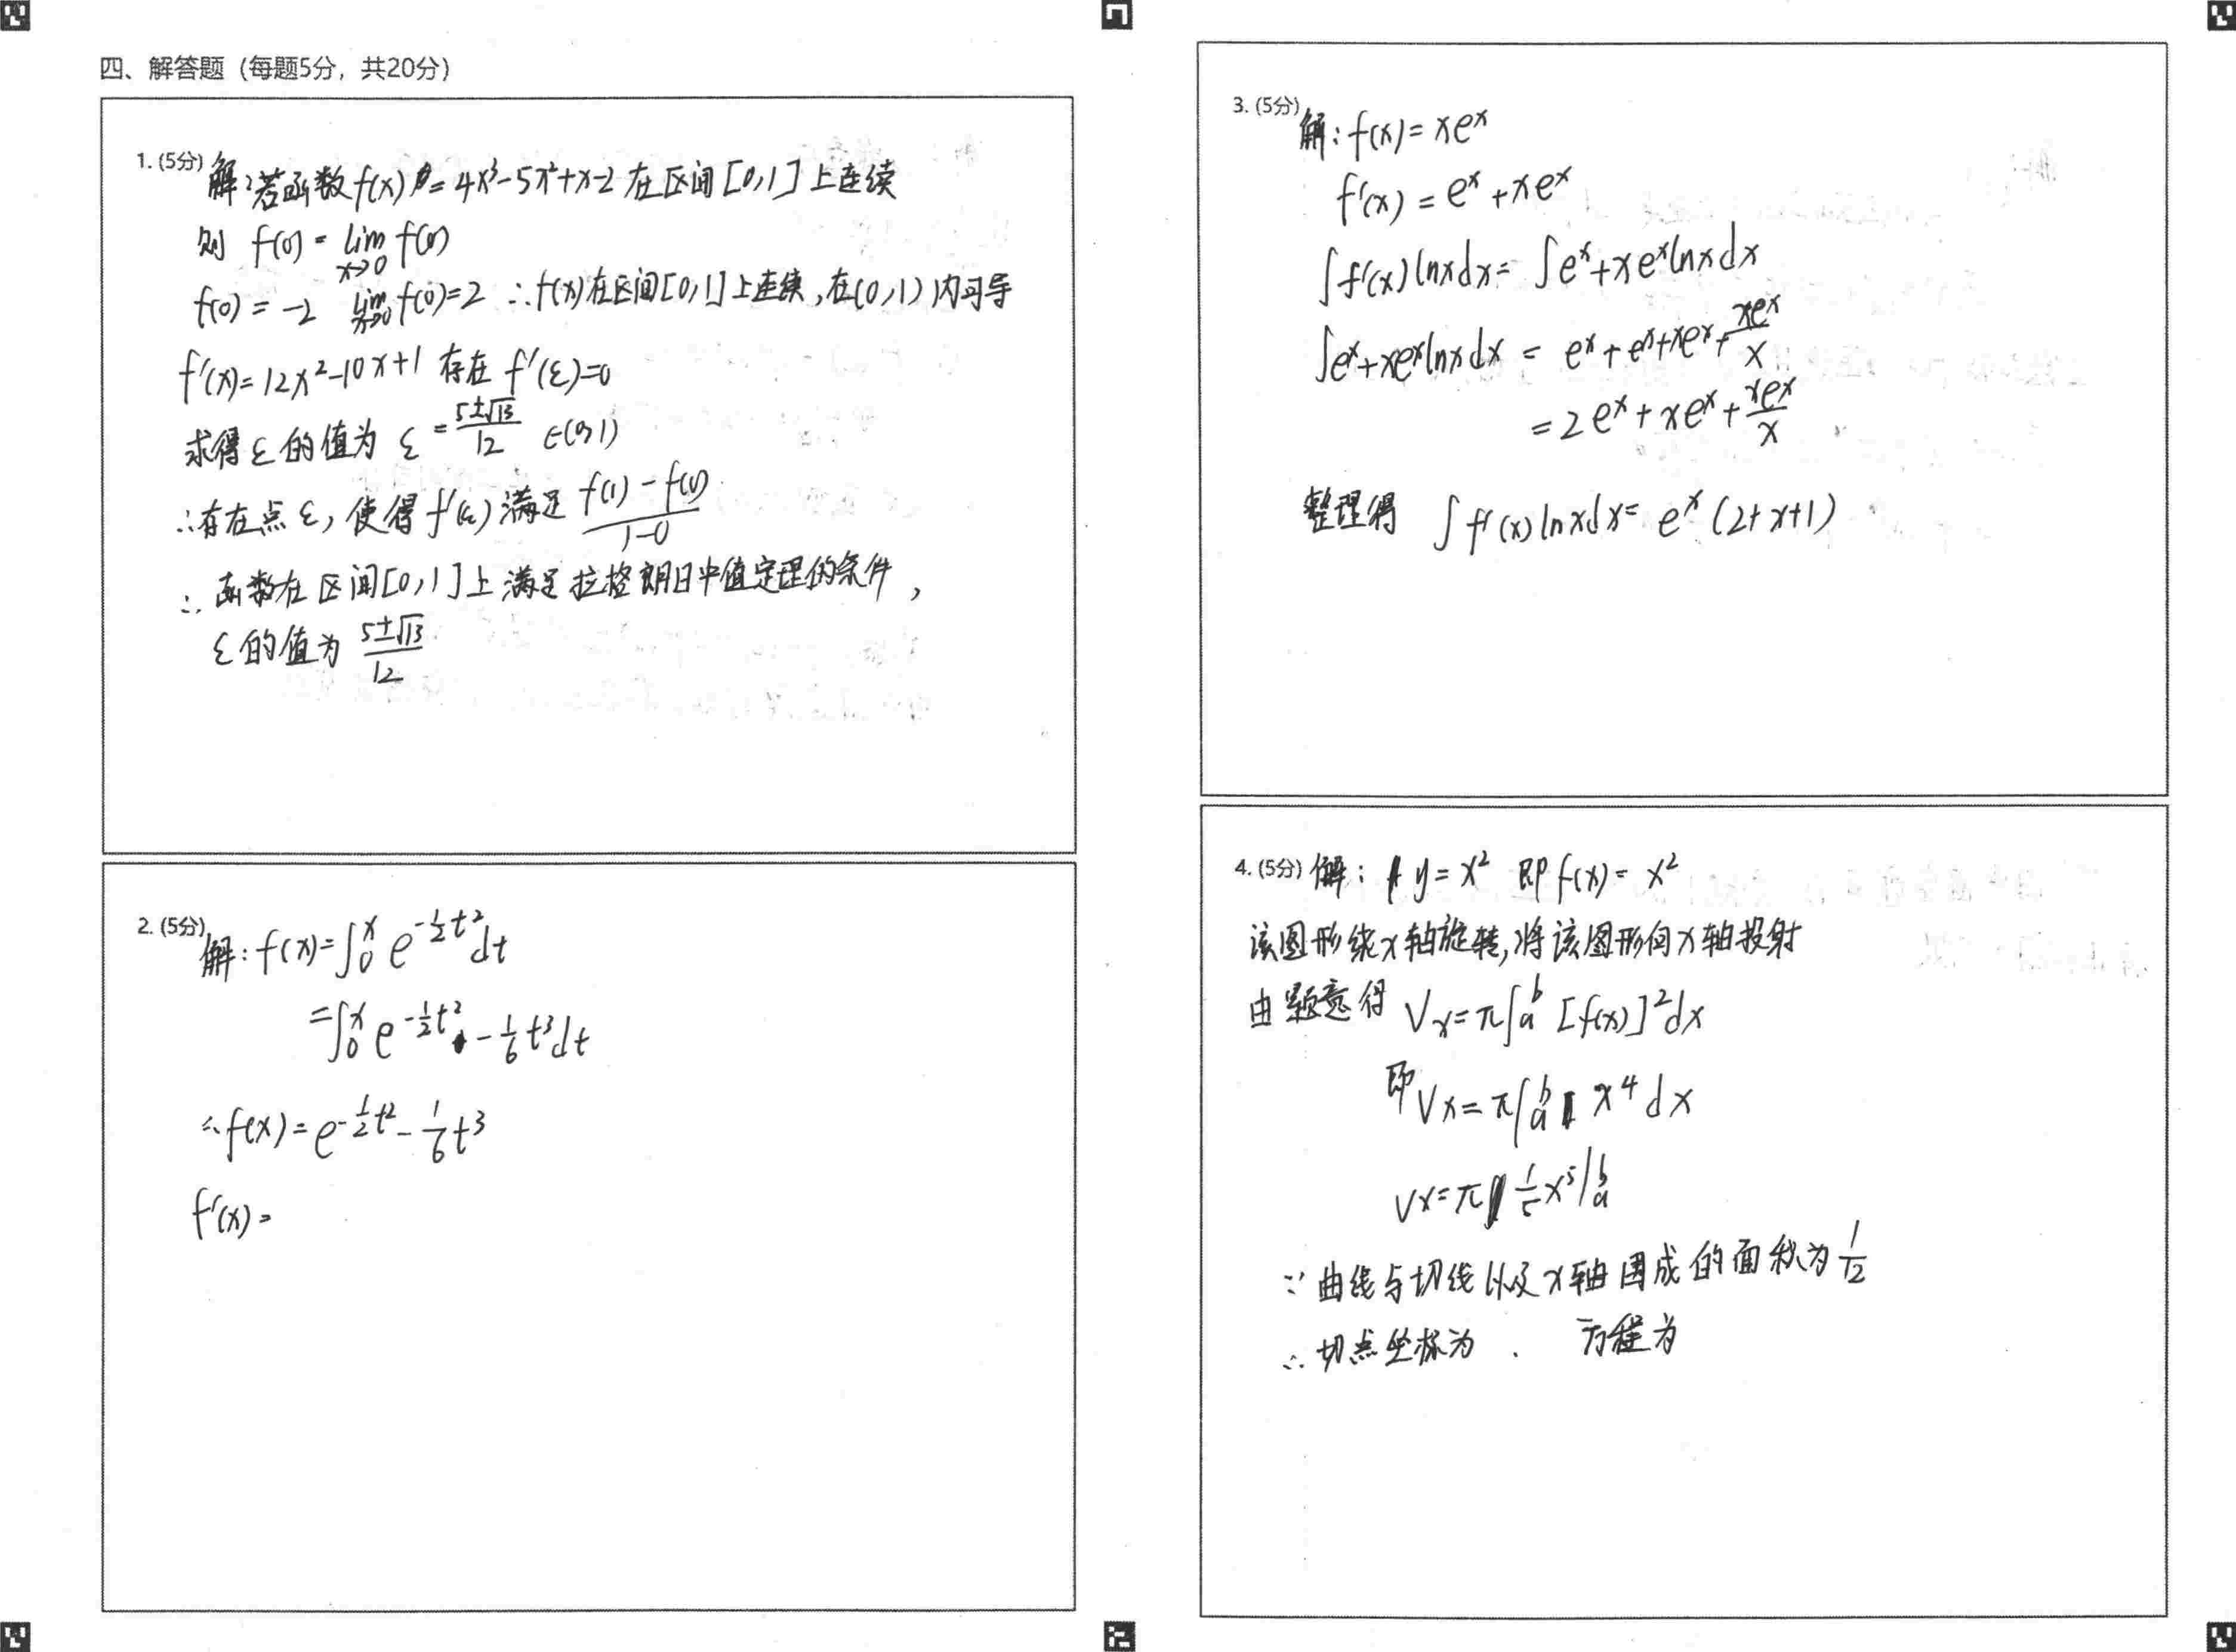 四、解答题（每题5分，共20分）
1. (5分) 解：若函数f(x)=4x³-5x²+x-2在区间[0,1]上连续
则 f(0) = lim x→0 f(0)
f(0) = -2 lim x→0 f(0)=2 ∴f(x)在区间[0,1]上连续,在(0,1)内可导
f'(x)=12x²-10x+1 存在 f'(ε)=0
求得ε的值为 ε = (5±√13)/12 ∈(0,1)
∴存在点ε, 使得f'(ε)满足 (f(1)-f(0))/(1-0)
∴ 函数在区间[0,1]上满足拉格朗日中值定理的条件,
ε的值为 (5±√13)/12
2. (5分) 解：f(x)=∫₀ˣ e^(-½t²) dt
=∫₀ˣ e^(-½t²) - 1/6 t³ dt
∴f(x)=e^(-½t²) - 1/6 t³
f'(x)=
3. (5分) 解：f(x)=xeˣ
f'(x)=eˣ+xeˣ
∫f'(x)lnxdx=∫eˣ+xeˣlnxdx
∫eˣ+xeˣlnxdx = eˣ+eˣ+xeˣ+xeˣ/x
=2eˣ+xeˣ+xeˣ/x
整理得 ∫f'(x)lnxdx=eˣ(2+x+1)
4. (5分) 解： y=x² 即f(x)=x²
该图形绕x轴旋转,将该图形向x轴投射
由题意得 Vx=π∫ₐᵇ[f(x)]²dx
即Vx=π∫ₐᵇ x⁴dx
Vx=π 1/5 x⁵|ₐᵇ
∵曲线与切线以及x轴围成的面积为1/12
∴切点坐标为 . 方程为